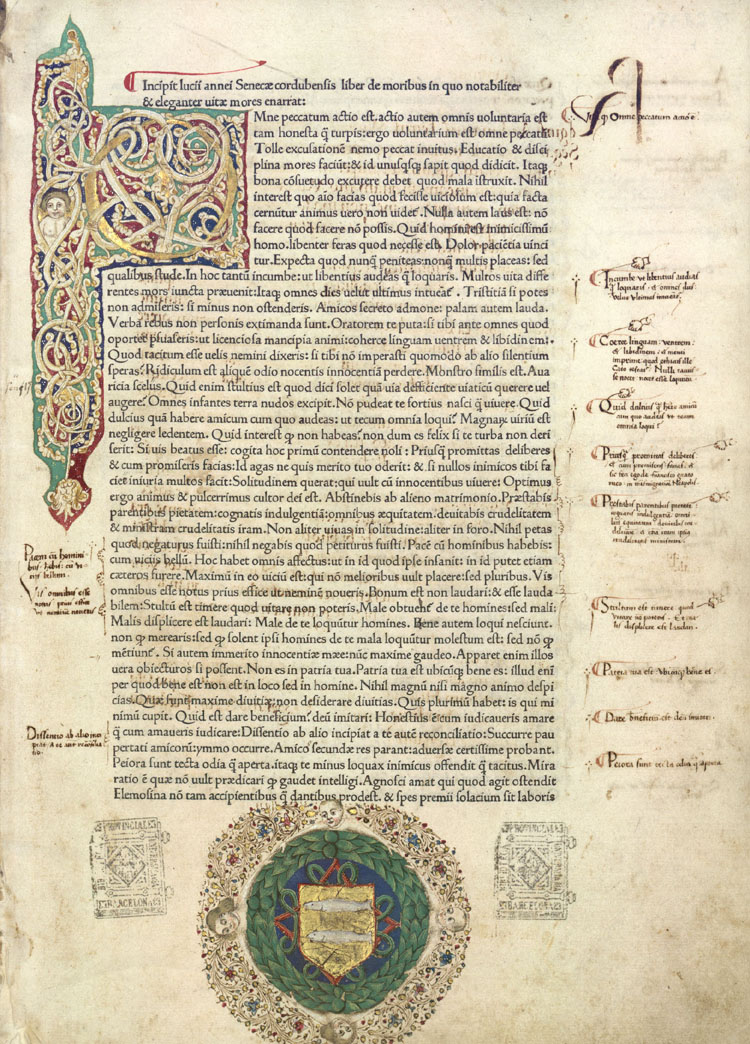 Incipit lucii annei Senecæ cordubensis liber de moribus in quo notabiliter
& eleganter uitæ mores enarrat:
Mne peccatum actio est. actio autem omnis uoluntaria est
tam honesta q̃ turpis: ergo uoluntarium est omne peccatũ
Tolle excusationẽ nemo peccat inuitus. Educatio & disci
plina mores faciũt: & id unusq̃sq; sapit quod didicit. Itaq;
bona cõsuetudo excutere debet quod mala istruxit. Nihil
interest quo aĩo facias quod fecisse uiciosum est: quia facta
cernũtur animus uero non uidet̃. Nulla autem laus est: nõ
facere quod facere nõ possis. Quid homini est inimicissimũ
homo. libenter feras quod necesse est. Dolor paciẽtia uinci
tur. Expecta quod nunq̃ peniteas: non q̃ multis placeas: sed
qualibus stude. In hoc tantũ incumbe: ut libentius audeas q̃ loquaris. Multos uita diffe
rentes mors iuncta præuenit: Itaq; omnes dies uelut ultimus intueãt̃. Tristitiã si potes
non admiseris: si minus non ostenderis. Amicos secreto admone: palam autem lauda.
Verba rebus non personis extimanda sunt. Oratorem te puta: si tibi ante omnes quod
oportet p̃suaseris: ut licenciosa mancipia animi: coherce linguam uentrem & libidinem:
Quod tacitum esse uelis nemini dixeris: si tibi nõ imperasti quomodo ab alio silentium
speras? Ridiculum est aliquẽ odio nocentis innocentiã perdere. Monstro similis est. Aua
ricia scelus. Quid enim stultius est quod dici solet quã uia deficiente uiaticũ querere uel
augere? Omnes infantes terra nudos excipit. Nõ pudeat te fortius nasci q̃ uiuere. Quid
dulcius quã habere amicum cum quo audeas: ut tecum omnia loqui? Magnaꝝ uiriũ est
negligere ledentem. Quid interest q̃ non habeas? non dum es felix si te turba non deri
serit: Si uis beatus esse: cogita hoc primũ contendere noli: Priusq̃ promittas deliberes
& cum promiseris facias: Id agas ne quis merito tuo oderit: & si nullos inimicos tibi fa
ciet iniuria multos facit: Solitudinem querat: qui uult cũ innocentibus uiuere: Optimus
ergo animus & pulcerrimus cultor dei est. Abstinebis ab alieno matrimonio. Præstabis
parentibus pietatem: cognatis indulgentiã: omnibus æquitatem. deuitabis crudelitatem
& ministram crudelitatis iram. Non aliter uiuas in solitudine: aliter in foro. Nihil petas
quod negaturus fuisti: nihil negabis quod petiturus fuisti. Pacẽ cũ hominibus habebis:
cum uiciis bellũ. Hoc habet omnis affectus: ut in id quod ipse insanit: in id putet etiam
cæteros furere. Maximũ in eo uiciũ est: qui nõ melioribus uult placere: sed pluribus. Vis
omnibus esse notus prius effice ut neminẽ noueris. Bonum est non laudari: & esse lauda
bilem: Stultũ est timere quod uitare non poteris. Male obtuet̃ de te homines: sed mali:
Malis displicere est laudari: Male de te loquũtur homines. Bene autem loqui nesciunt.
non q̃ merearis: sed q̃ solent ipsi homines de te mala loquũtur molestum est: sed nõ q̃
mẽtiunt̃. Si autem immerito innocentiæ mæe: nũc maxime gaudeo. Apparet enim illos
uera obiecturos si possent. Non es in patria tua. Patria tua est ubicũq; bene es: illud enĩ
per quod bene est non est in loco sed in homine. Nihil magnũ nisi magno animo despi
cias. Quæ sunt maxime diuitiæ: non desiderare diuitias. Quis plurimũ habet: is qui mi
nimũ cupit. Quid est dare beneficiũm? deũ imitari: Honestius ẽ cum iudicaueris amare
q̃ cum amaueris iudicare: Dissentio ab alio incipiat a te autẽ reconciliatio: Succurre pau
pertati amicorũ: ymmo occurre. Amico secundæ res parant: aduersæ certissime probant.
Peiora sunt tecta odia q̃ aperta. itaq; te minus loquax inimicus offendit q̃ tacitus. Mira
ratio ẽ quæ nõ uult prædicari q̃ gaudet intelligi. Agnosci amat qui quod agit ostendit
Elemosina nõ tam accipientibus q̃ dantibus prodest. & spes premii solacium sit laboris
Omne peccatum
Incumbe ut libentius audias
q̃ loquaris
Coerce linguam: uentrem:
et libidinem
Quid dulcius q̃ hĩe amicũ
cum quo audeas ut tecum
omnia loqui
Priusq̃ promittas deliberes
et cum promiseris facias
Præstabis parentibus pietatem
Pacem cũ homini
bus habebis: cũ ui
ciis bellum
Vis omnibus esse
notus prius effice
ut neminem noueris
Stultum est timere quod
uitare nõ poteris
displicere est laudari
Patria tua est ubicũq; bene es
Dare beneficiũ est deũ imitari
Dissentio ab alio inci
piat a te autem reconcilia
tio
Peiora sunt tecta odia q̃ aperta
PROVINCIAL
BARCELONA
PROVINCIAL
BARCELONA